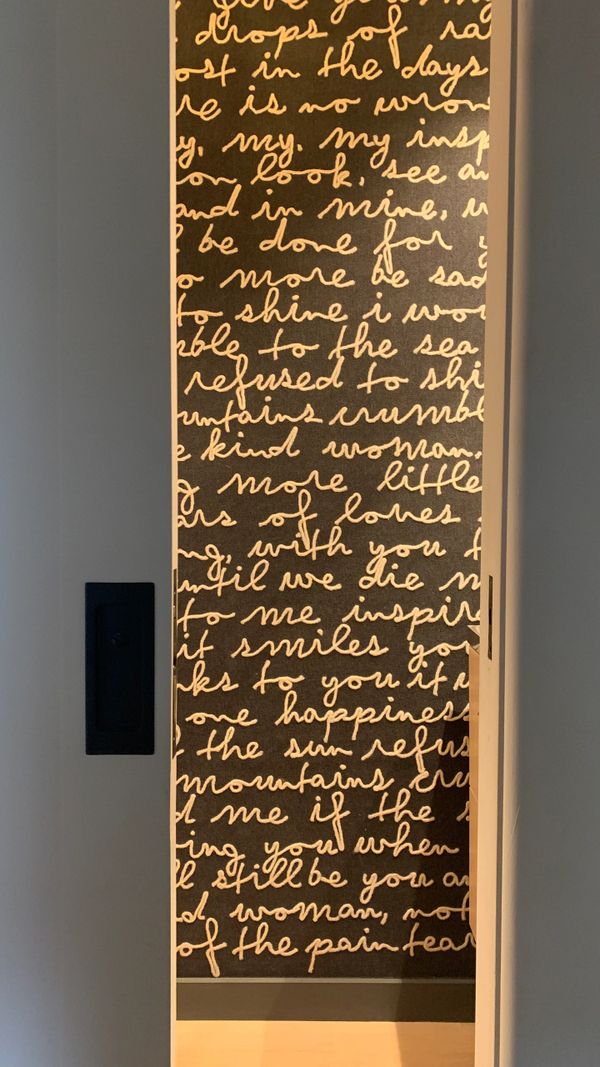 give you my
drops of ra
ost in the days
re is no wron
y, my, my insp
on look, see an
and in mine, w
l be done for y
o more be sad
to shine i wou
ble to the sea
refused to shi
untains crumbl
e kind woman.
g more little
ars of loves
ng, with you t
until we die m
to me inspir
it smiles you
ks to you it w
one happiness
the sun refus
mountains cru
d me if the s
ing you when
ll still be you an
d woman, not
of the pain tear